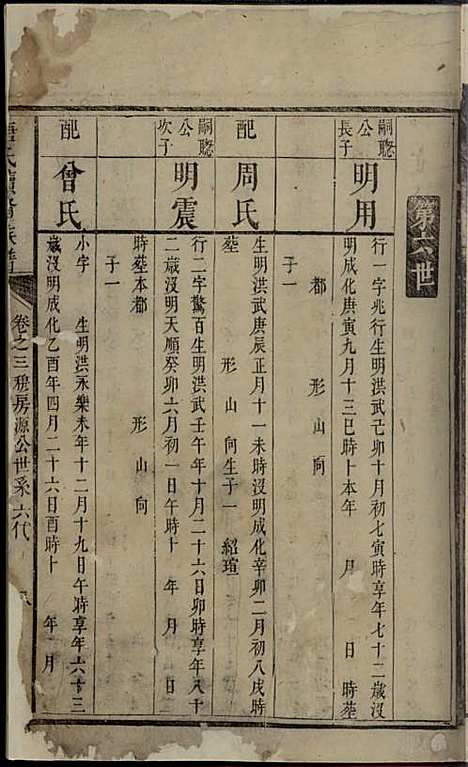 第六世
嗣聰公長子
明用
行一字兆行生明洪武己卯十月初七寅時享年七十二歲沒
明成化庚寅九月十三巳時卜本年 月 日 時塟
都 形山向
子一
配
周氏
生明洪武庚辰正月十一未時沒明成化辛卯二月初八戌時
塟 形山向生子一 紹瑄
嗣聰公次子
明震
行二字驚百生明洪武壬午年十月二十六日卯時享年八十
二歲沒明天順癸卯六月初一日午時卜 年 月 日
時塟本都 形山向
子一
配
曾氏
小字 生明洪永樂未年十二月十九日午時享年六十三
歲沒明成化乙酉年四月二十六日酉時卜 年 月
氏續脩族譜
卷之三 房源公世系 六代